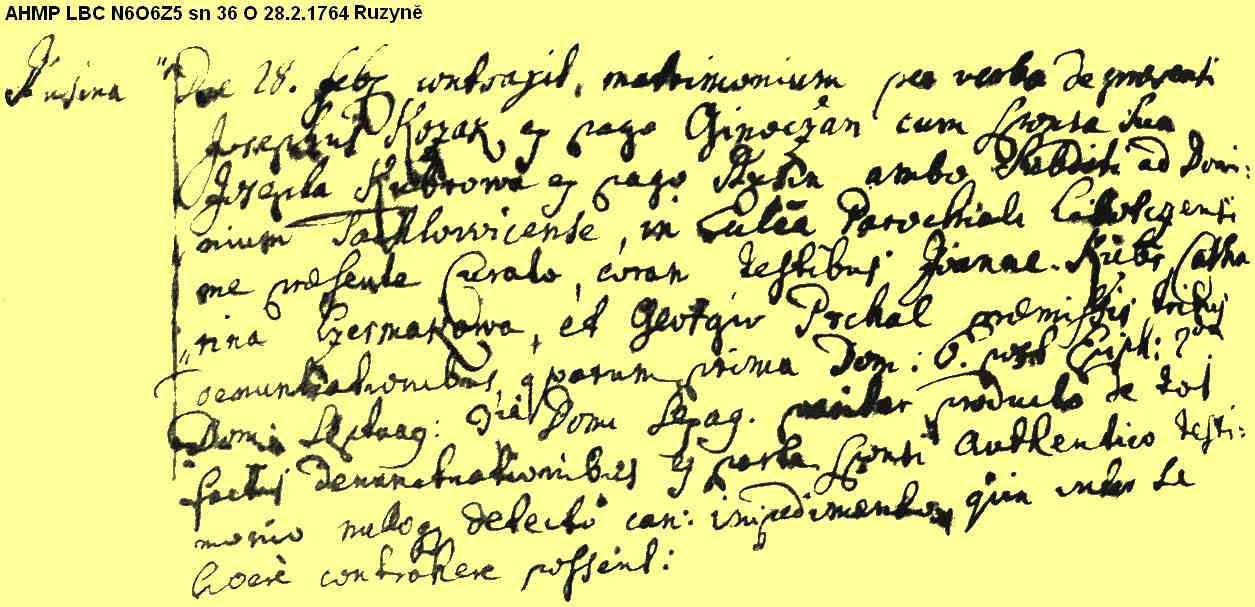 AHMP LBC N6O6Z5 sn 36 O 28.2.1764 Ruzyně
Die 28. feb contraxit matrimonium per verba de praesenti
Josephus Kozak ex pago Ginoczan cum Sponsa Sua
Josepha ex pago ambo Subditi ad Domi:
nium Tachlowicense, in Parochiali
me praesente Curato, coram testibus Joanne Catha
rina Czermakowa, et Georgio Prchal praemissis tribus
denuntiationibus, quarum prima Dom: 6. post Epiph: 2da
Domi Septuag: 3tia Domi Sexag. pariter producto de tot
factis denuntiationibus ex parte Sponsi authentico testi:
monio nulloq detecto can: impedimento, quin inter se
contrahere possent: